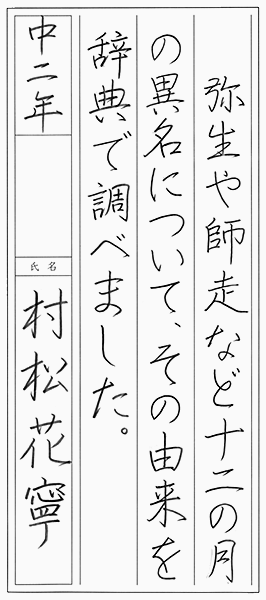 弥生や師走など十二の月
の異名について、その由来を
辞典で調べました。
中二年
氏名
村松花寧